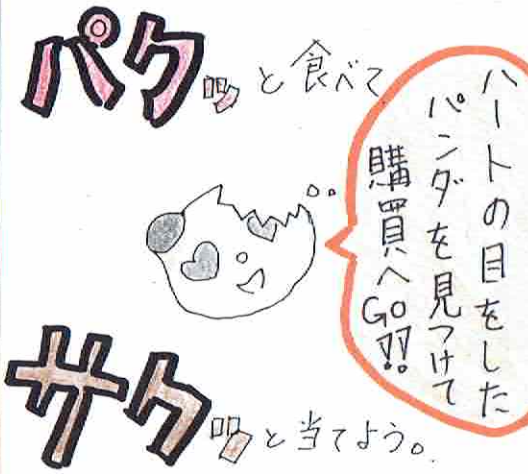 パクッと食べて
ハートの目をした
パンダを見つけて
購買へGO!!
サクッと当てよう。